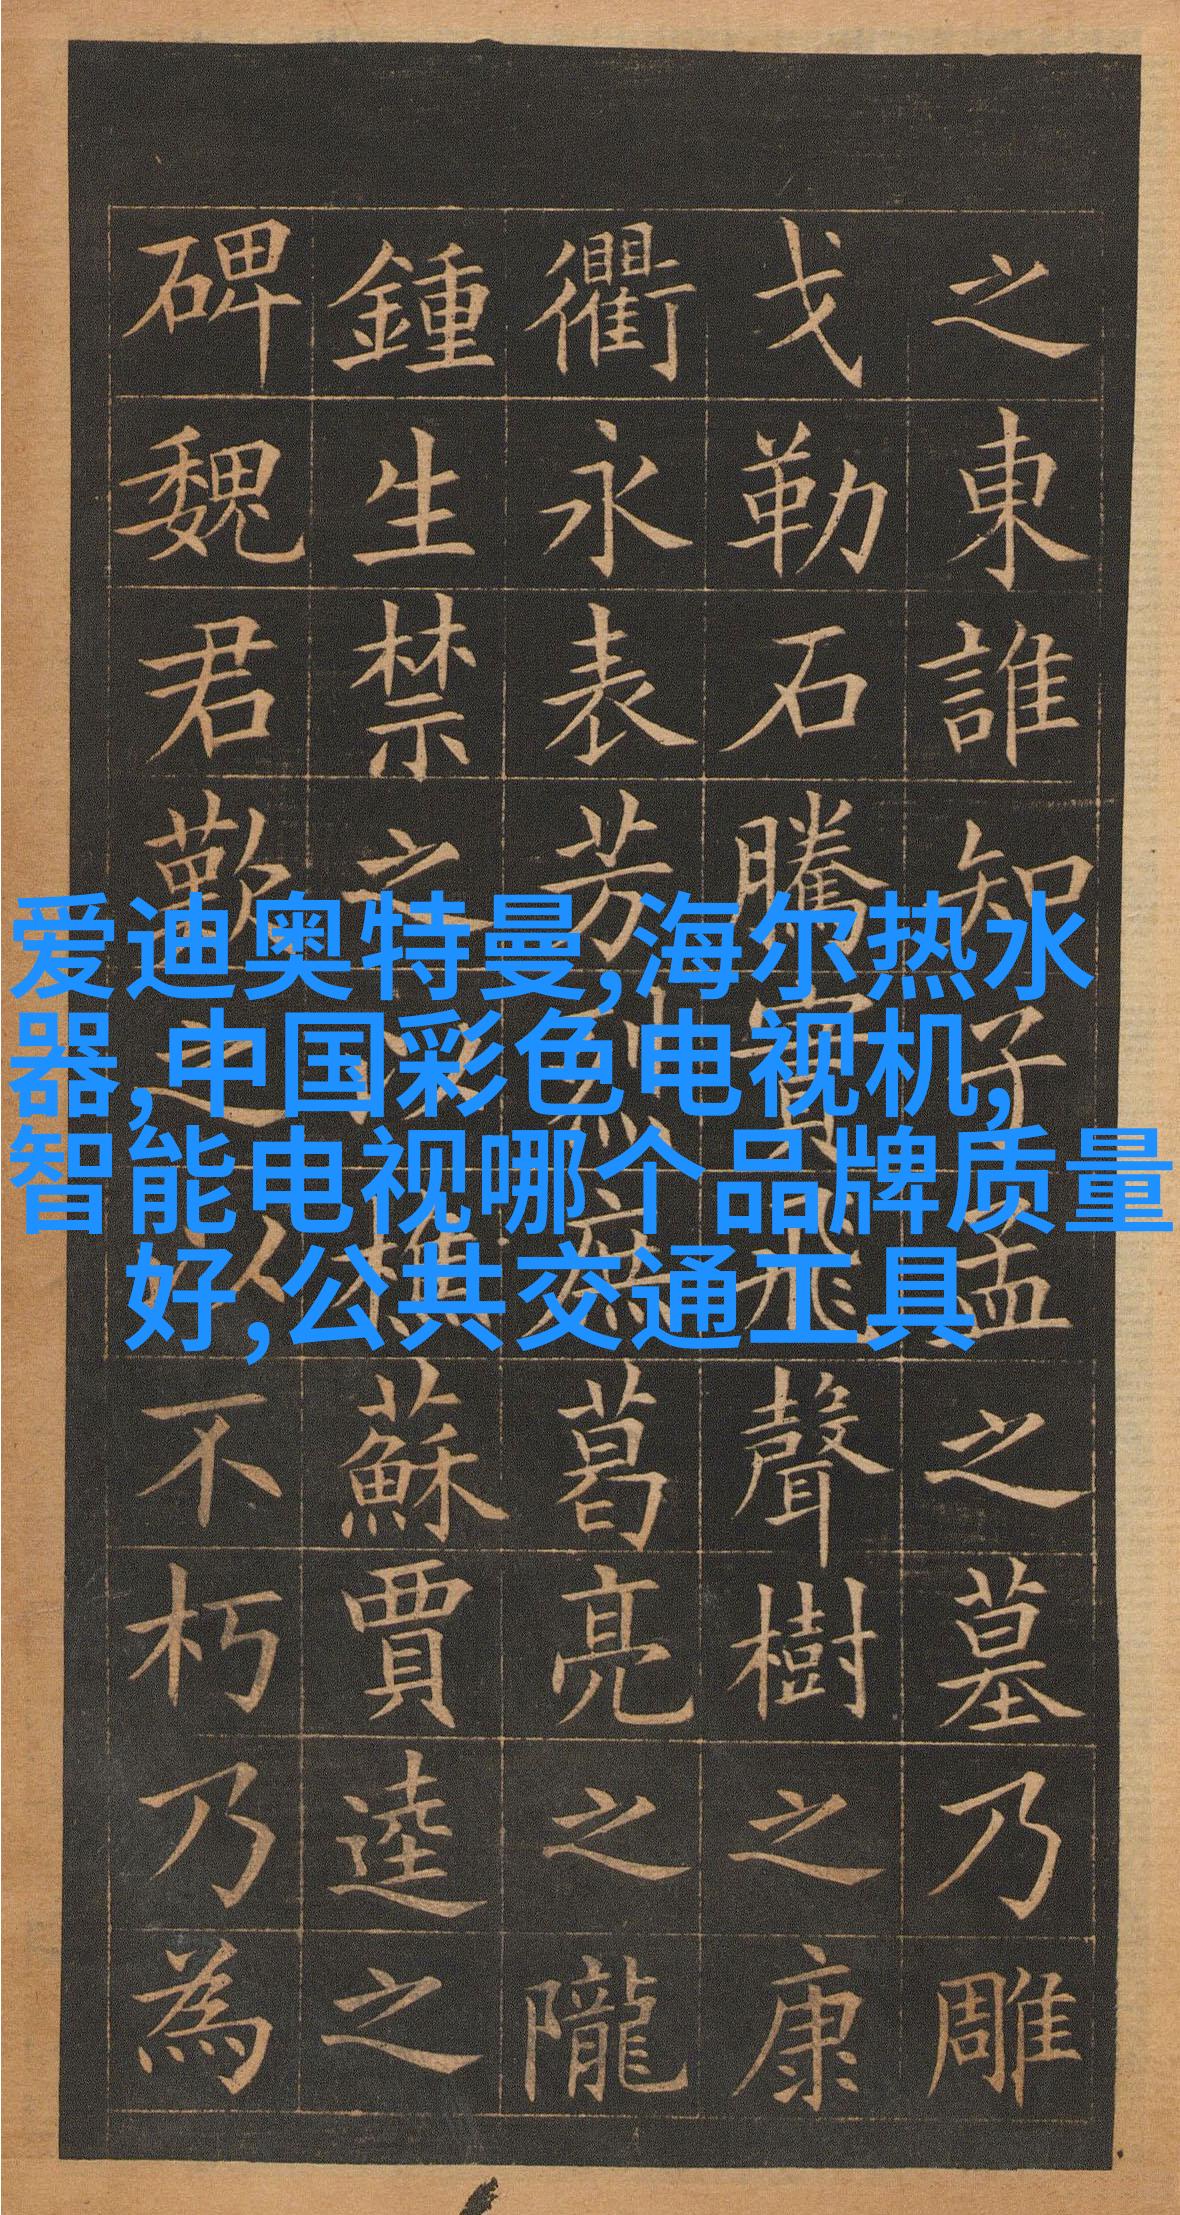 之東誰知子孟之墓乃雕
戈勒石騰實飛聲樹之康
衢永表芳烈庶葛亮之隴
鍾生禁之樵蘇賈逵之
碑魏君歎之以不朽乃為
爱迪奥特曼,海尔热水
器,中国彩色电视机,
智能电视哪个品牌质量
好,公共交通工具